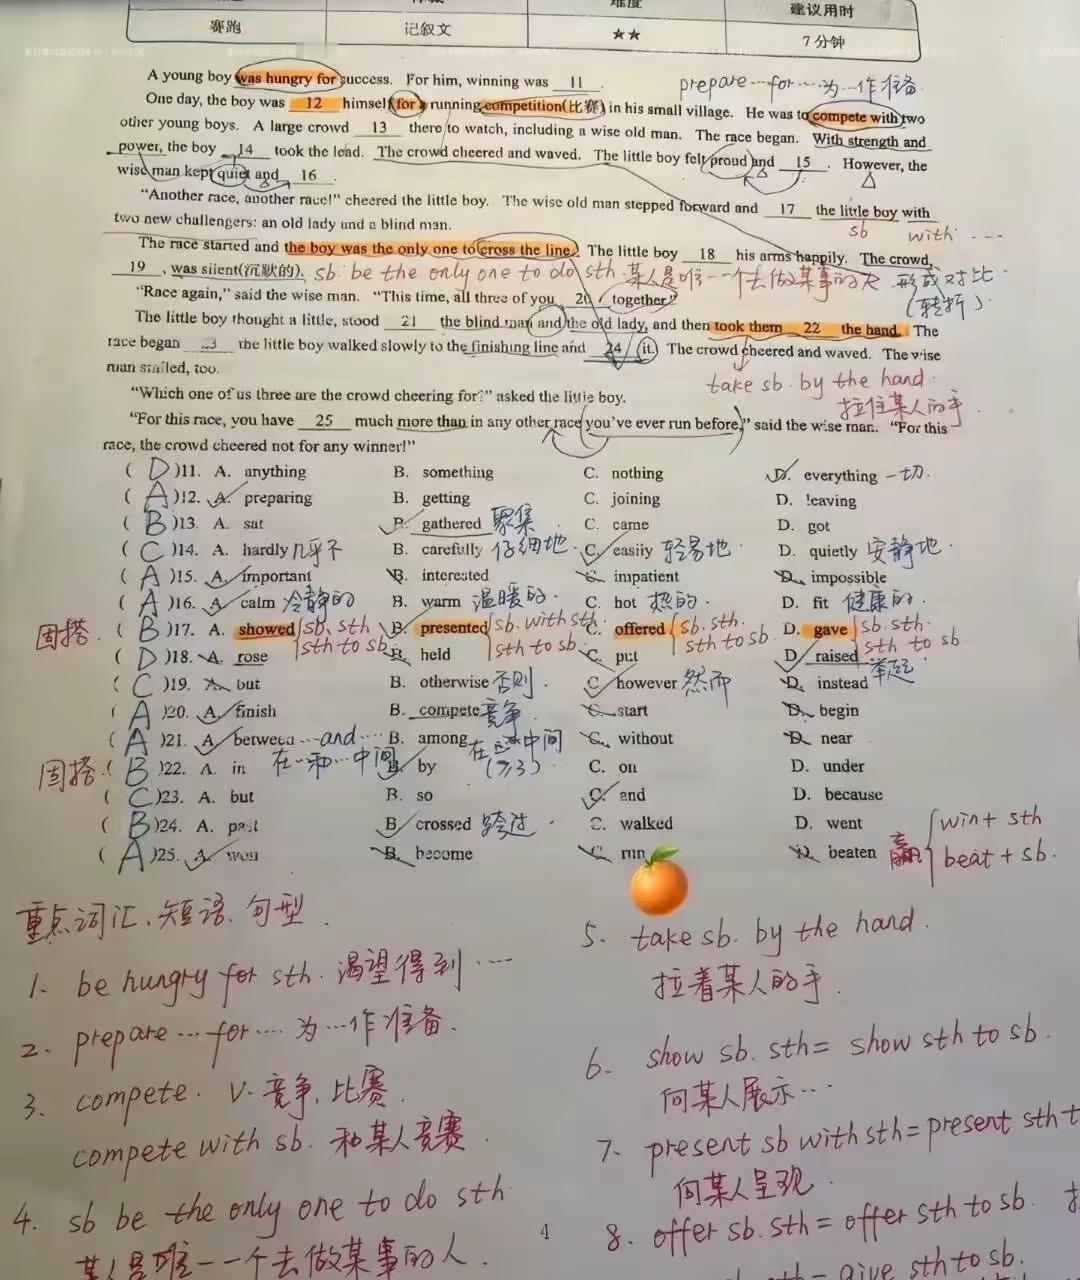 难度
建议用时
赛跑 记叙文 ★★ 7分钟
A young boy was hungry for success. For him, winning was 11 .
prepare…for…为…作准备
One day, the boy was 12 himself for a running competition(比赛) in his small village. He was to compete with two
other young boys. A large crowd 13 there to watch, including a wise old man. The race began. With strength and
power, the boy 14 took the lead. The crowd cheered and waved. The little boy felt proud and 15 . However, the
wise man kept quiet and 16 .
"Another race, another race!" cheered the little boy. The wise old man stepped forward and 17 the little boy with
sb with…
two new challengers: an old lady and a blind man.
The race started and the boy was the only one to cross the line. The little boy 18 his arms happily. The crowd,
19 , was silent(沉默的). sb. be the only one to do sth. 某人是唯一一个去做某事的人 形成对比
(转折)
"Race again," said the wise man. "This time, all three of you 20 together."
The little boy thought a little, stood 21 the blind man and the old lady, and then took them 22 the hand. The
race began 23 the little boy walked slowly to the finishing line and 24 it. The crowd cheered and waved. The wise
man smiled, too.
take sb. by the hand.
拉住某人的手.
"Which one of us three are the crowd cheering for?" asked the little boy.
"For this race, you have 25 much more than in any other race you've ever run before," said the wise man. "For this
race, the crowd cheered not for any winner!"
( D )11. A. anything B. something C. nothing D. everything 一切.
( A )12. A. preparing B. getting C. joining D. leaving
( B )13. A. sat B. gathered 聚集 C. came D. got
( C )14. A. hardly 几乎不 B. carefully 仔细地 C. easily 轻易地. D. quietly 安静地.
( A )15. A. important B. interested C. impatient D. impossible
( A )16. A. calm 冷静的 B. warm 温暖的. C. hot 热的. D. fit 健康的.
固搭. ( B )17. A. showed sb. sth B. presented sb. with sth. C. offered sb. sth. D. gave sb. sth.
sth to sb. sth to sb. sth to sb sth to sb
( D )18. A. rose B. held C. put D. raised 举起
( C )19. A. but B. otherwise 否则. C. however 然而 D. instead
( A )20. A. finish B. compete 竞争. C. start D. begin
( A )21. A. between…and… B. among C. without D. near
在…和…中间 在…中间
(≥3)
固搭. ( B )22. A. in B. by C. on D. under
( C )23. A. but B. so C. and D. because
( B )24. A. past B. crossed 跨过. C. walked D. went
( A )25. A. won B. become C. run D. beaten 赢
win + sth
beat + sb.
重点词汇、短语、句型.
1. be hungry for sth. 渴望得到…
2. prepare…for…. 为…作准备.
3. compete. v. 竞争, 比赛.
compete with sb. 和某人竞赛.
4. sb be the only one to do sth
某人是唯一一个去做某事的人.
5. take sb. by the hand.
拉着某人的手.
6. show sb. sth = show sth to sb.
向某人展示…
7. present sb with sth = present sth t
向某人呈现.
8. offer sb. sth = offer sth to sb.
sth = give sth to sb.
4